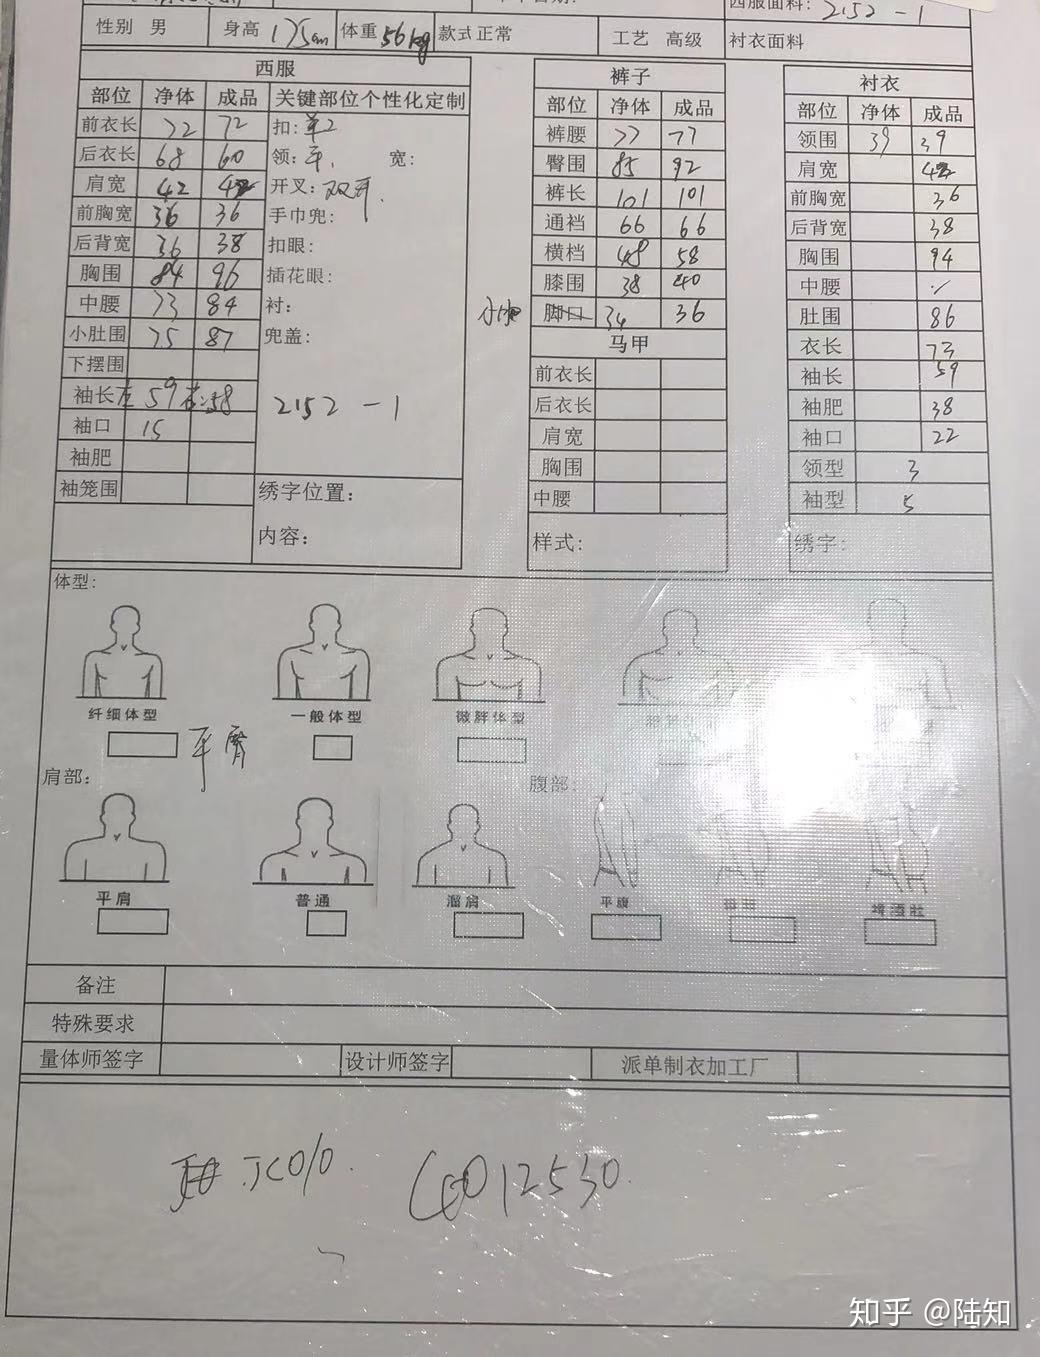 西服面料: 2152-1
性别 男 身高 175cm 体重 56kg 款式 正常 工艺 高级 衬衣面料
西服
部位 净体 成品 关键部位个性化定制
前衣长 72 72 扣: 单2
后衣长 68 60 领: 平. 宽:
肩宽 42 42 开叉: 双开.
前胸宽 36 36 手巾兜:
后背宽 36 38 扣眼:
胸围 84 96 插花眼:
中腰 73 84 衬:
小肚围 75 87 兜盖:
下摆围
袖长 左 59 右:58 2152-1
袖口 15
袖肥
袖笼围 绣字位置:
内容:
裤子
部位 净体 成品
裤腰 77 77
臀围 85 92
裤长 101 101
通裆 66 66
横档 48 58
膝围 38 40
脚口 34 36
马甲
前衣长
后衣长
肩宽
胸围
中腰
样式:
衬衣
部位 净体 成品
领围 39 39
肩宽 42
前胸宽 36
后背宽 38
胸围 94
中腰
肚围 86
衣长 73
袖长 59
袖肥 38
袖口 22
领型 3
袖型 5
绣字:
体型:
纤细体型 一般体型 微胖体型
平臀
肩部: 腹部:
平肩 普通 溜肩 平腹 啤酒肚
备注
特殊要求
量体师签字 设计师签字 派单制衣加工厂
JC010. 12530.
知乎 @陆知